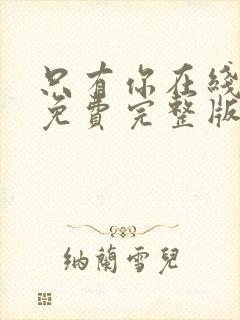 只有你在綫
免費完整版
納蘭雪兒